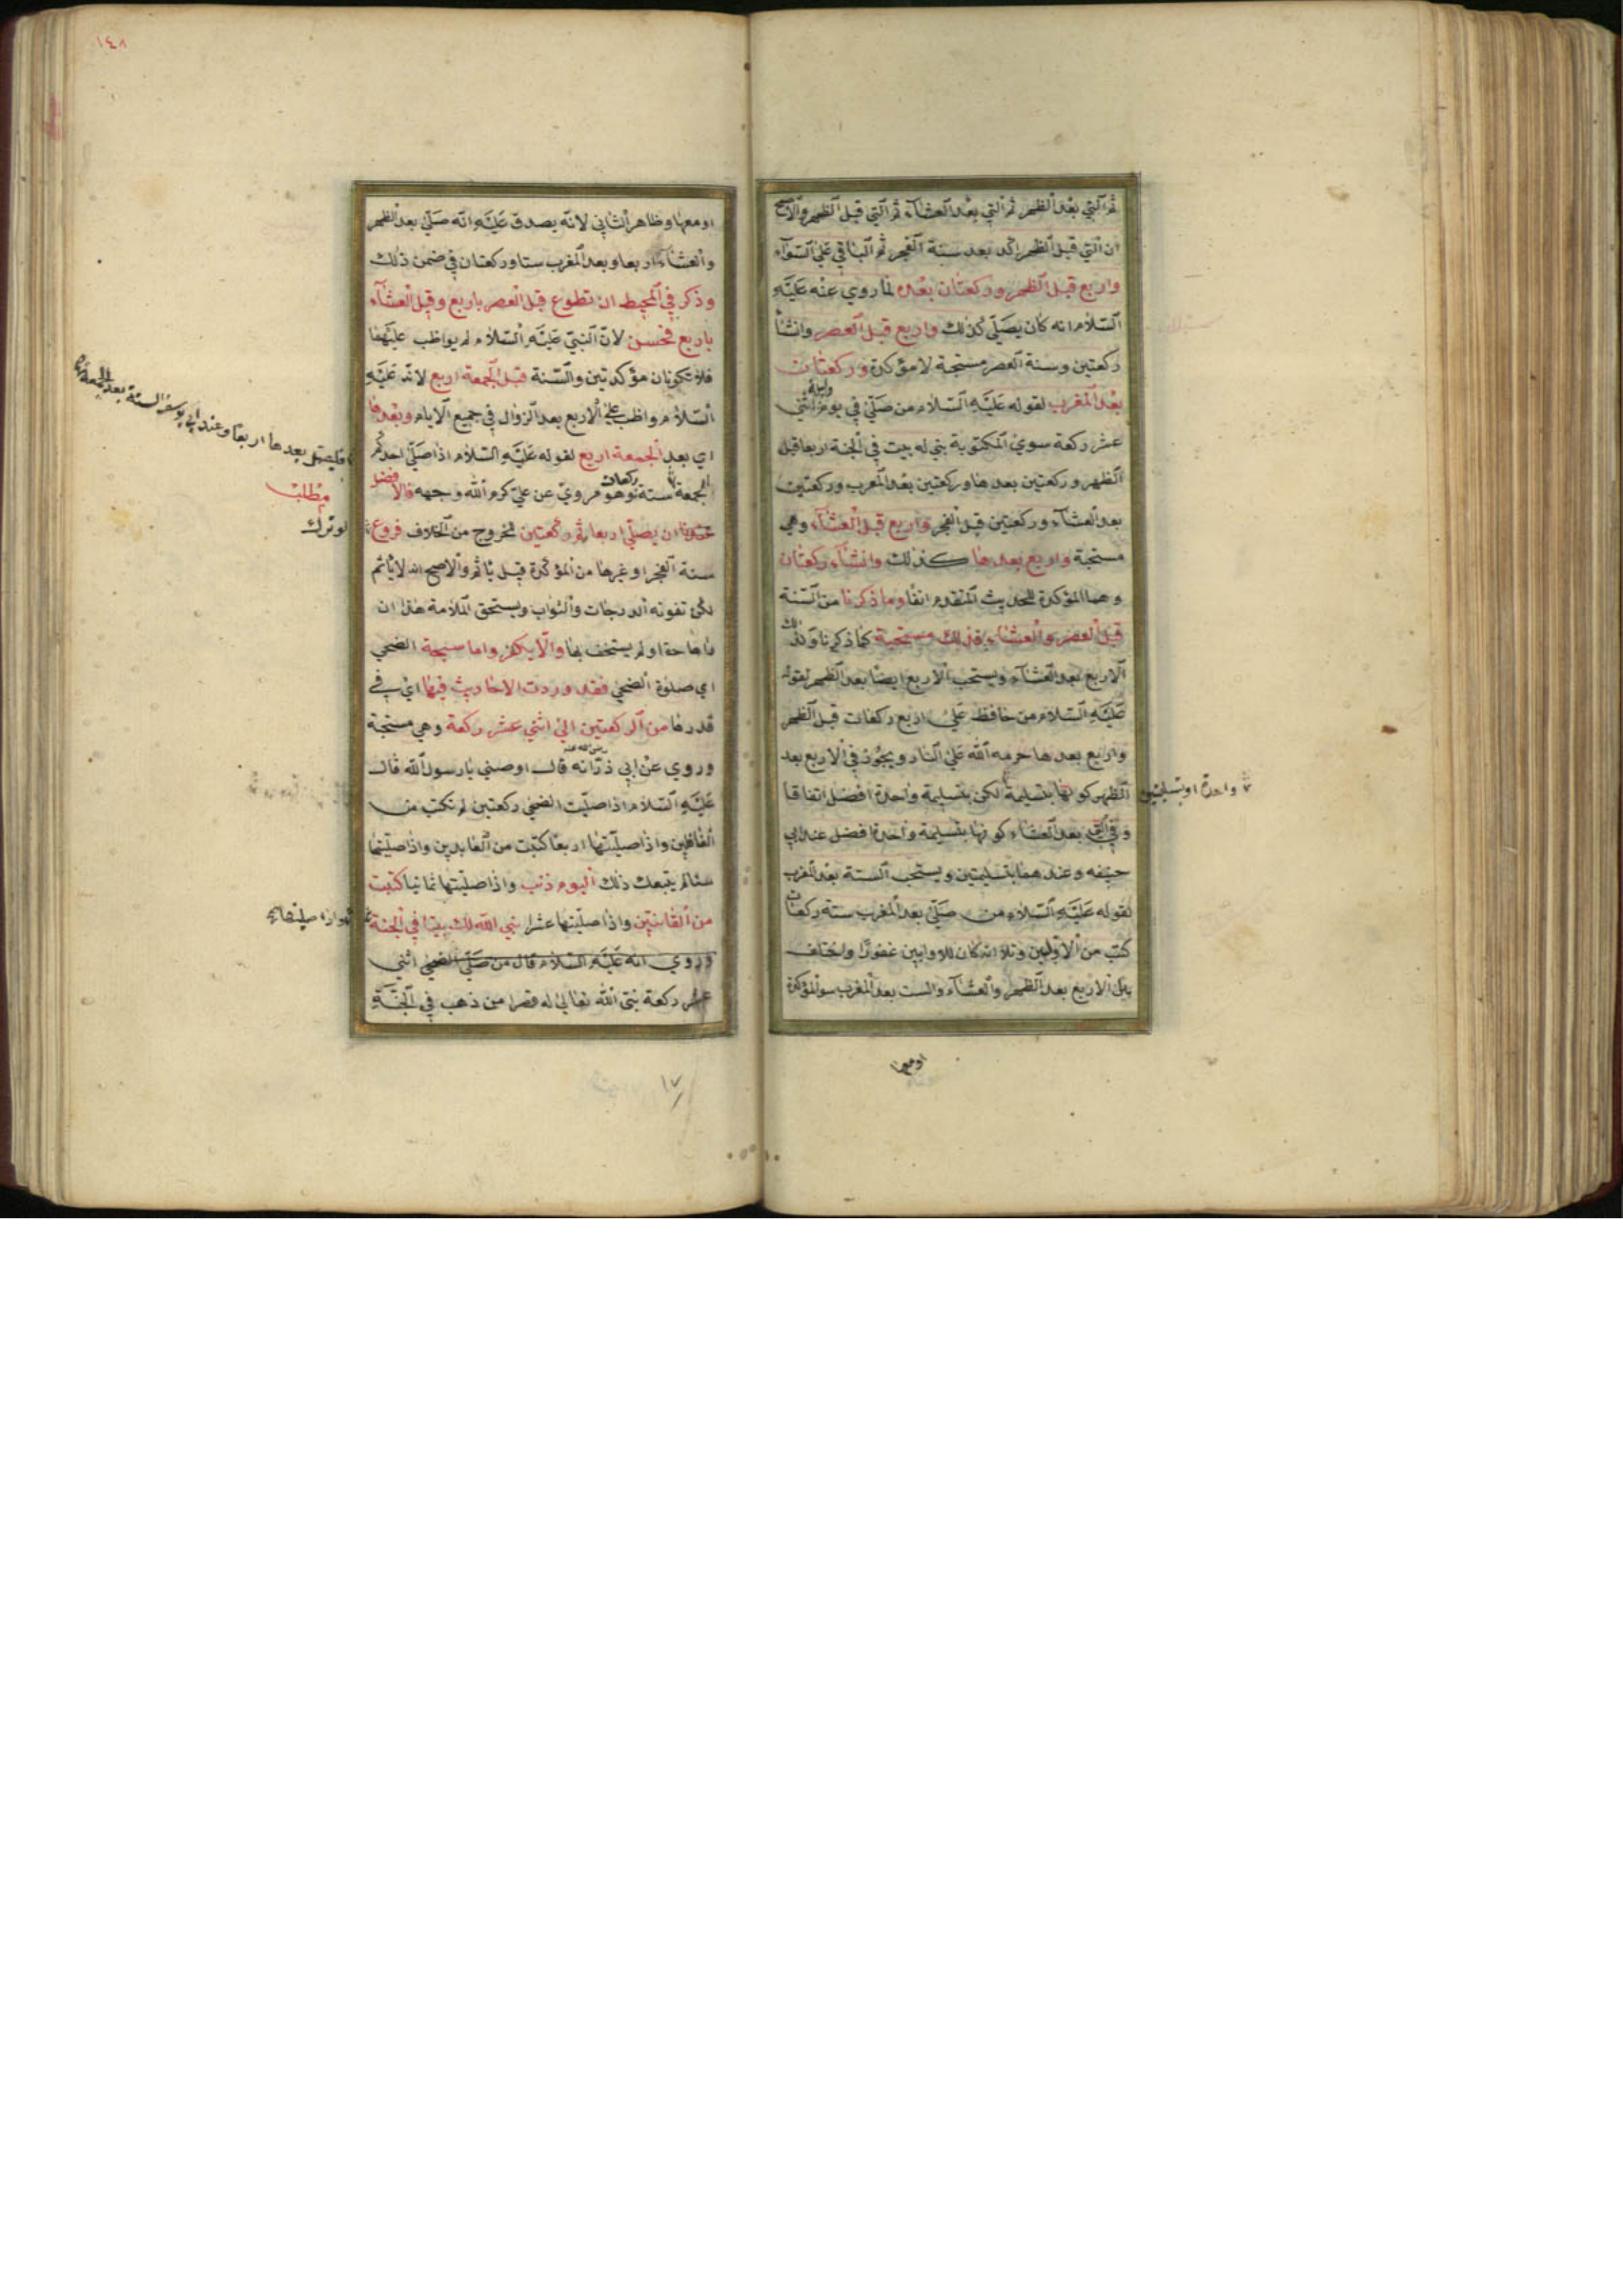 ثم التي بعد الظهر ثم التي بعد العشاء ثم التي قبل الظهر والاصح
ان التي قبل الظهر اكد بعد سنة الفجر ثم الباقي على السواء
واربع قبل الظهر وركعتان بعده لما روي عنه عليه
السلام انه كان يصلي كذلك واربع قبل العصر وان شاء
ركعتين وسنة العصر مستحبة لا مؤكدة وركعتان
بعد المغرب لقوله عليه السلام من صلى في يوم وليلة اثنتي
عشر ركعة سوى المكتوبة بني له بيت في الجنة اربعا قبل
الظهر وركعتين بعدها وركعتين بعد المغرب وركعتين
بعد العشاء وركعتين قبل الفجر واربع قبل العشاء وهي
مستحبة واربع بعدها كذلك وان شاء ركعتان
وهما المؤكدة للحديث المتقدم انفا وما ذكرنا من السنة
قبل العصر والعشاء فذلك مستحبة كما ذكرنا وكذلك
الاربع بعد العشاء ويستحب الاربع ايضا بعد الظهر لقوله
عليه السلام من حافظ على اربع ركعات قبل الظهر
واربع بعدها حرمه الله على النار ويجوز في الاربع بعد
الظهر كونها بتسليمة لكن بتسليمة واحدة افضل اتفاقا
واحدة او بتسليمتين
وفي التي بعد العشاء كونها بتسليمة واحدة افضل عند ابي
حنيفه وعندهما بتسليمتين ويستحب الستة بعد المغرب
لقوله عليه السلام من صلى بعد المغرب ستة ركعات
كتب من الاوابين وتلا انه كان للاوابين غفورا واختلف
بان الاربع بعد الظهر والعشاء والست بعد المغرب سوى المؤكدة
او معها
١٤٨
او معها وظاهر الثاني لانه يصدق عليه انه صلى بعد الظهر
والعشاء اربعا وبعد المغرب ستا وركعتان في ضمن ذلك
وذكر في المحيط ان تطوع قبل العصر باربع وقبل العشاء
باربع فحسن لان النبي عليه السلام لم يواظب عليهما
فلا تكونان مؤكدتين والسنة قبل الجمعة اربع لانه عليه
السلام واظب على الاربع بعد الزوال في جميع الايام وبعدها
اي بعد الجمعة اربع لقوله عليه السلام اذا صلى احدكم
فليصل بعدها اربعا وعند ابي يوسف السنة بعد الجمعة
الجمعة ستة ركعات وهو مروي عن علي كرم الله وجهه فالافضل
مطلب
عندنا ان يصلي اربعا ثم ركعتين للخروج من الخلاف فروع
لو ترك
سنة الفجر او غيرها من المؤكدة قيل ياثم والاصح انه لا ياثم
لكن تفوته الدرجات والثواب ويستحق الملامة هذا ان
راها حقا ولم يستخف بها والا يكفر واما سبحة الضحى
اي صلوة الضحى فقد وردت الاحاديث فيها اي في
قدرها من الركعتين الى اثني عشر ركعة وهي مستحبة
وروي عن ابي ذر رضى الله عنه انه قال اوصني يا رسول الله قال
عليه السلام اذا صليت الضحى ركعتين لم تكتب من
الغافلين واذا صليتها اربعا كتبت من العابدين واذا صليتها
ستا لم يتبعك ذلك اليوم ذنب واذا صليتها ثمانيا كتبت
من القانتين واذا صليتها عشرا بني الله لك بيتا في الجنة
وروي انه عليه السلام قال من صلى الضحى اثني
عشر ركعة بنى الله تعالى له قصرا من ذهب في الجنة
١٧